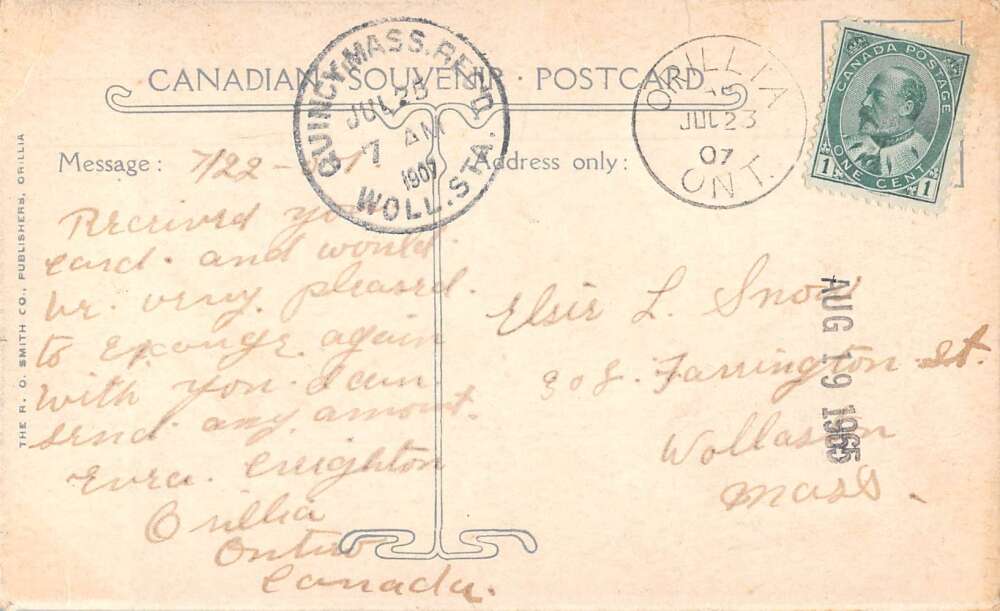 CANADIAN SOUVENIR · POSTCARD
QUINCY, MASS. REC'D.
JUL 25
7 AM
1907
WOLL. STA.
ORILLIA
JUL 23
07
ONT.
CANADA POSTAGE
1 ONE CENT 1
Message: 7/22-
Received you
card. and would
be. very pleased.
to exonge again
with you. I can
send. any amout.
Creighton
Orillia
Canada.
Address only:
Elsie L. Snow
Farrington St.
Wollason
Mass.
AUG 19 1965
THE R. O. SMITH CO., PUBLISHERS, ORILLIA